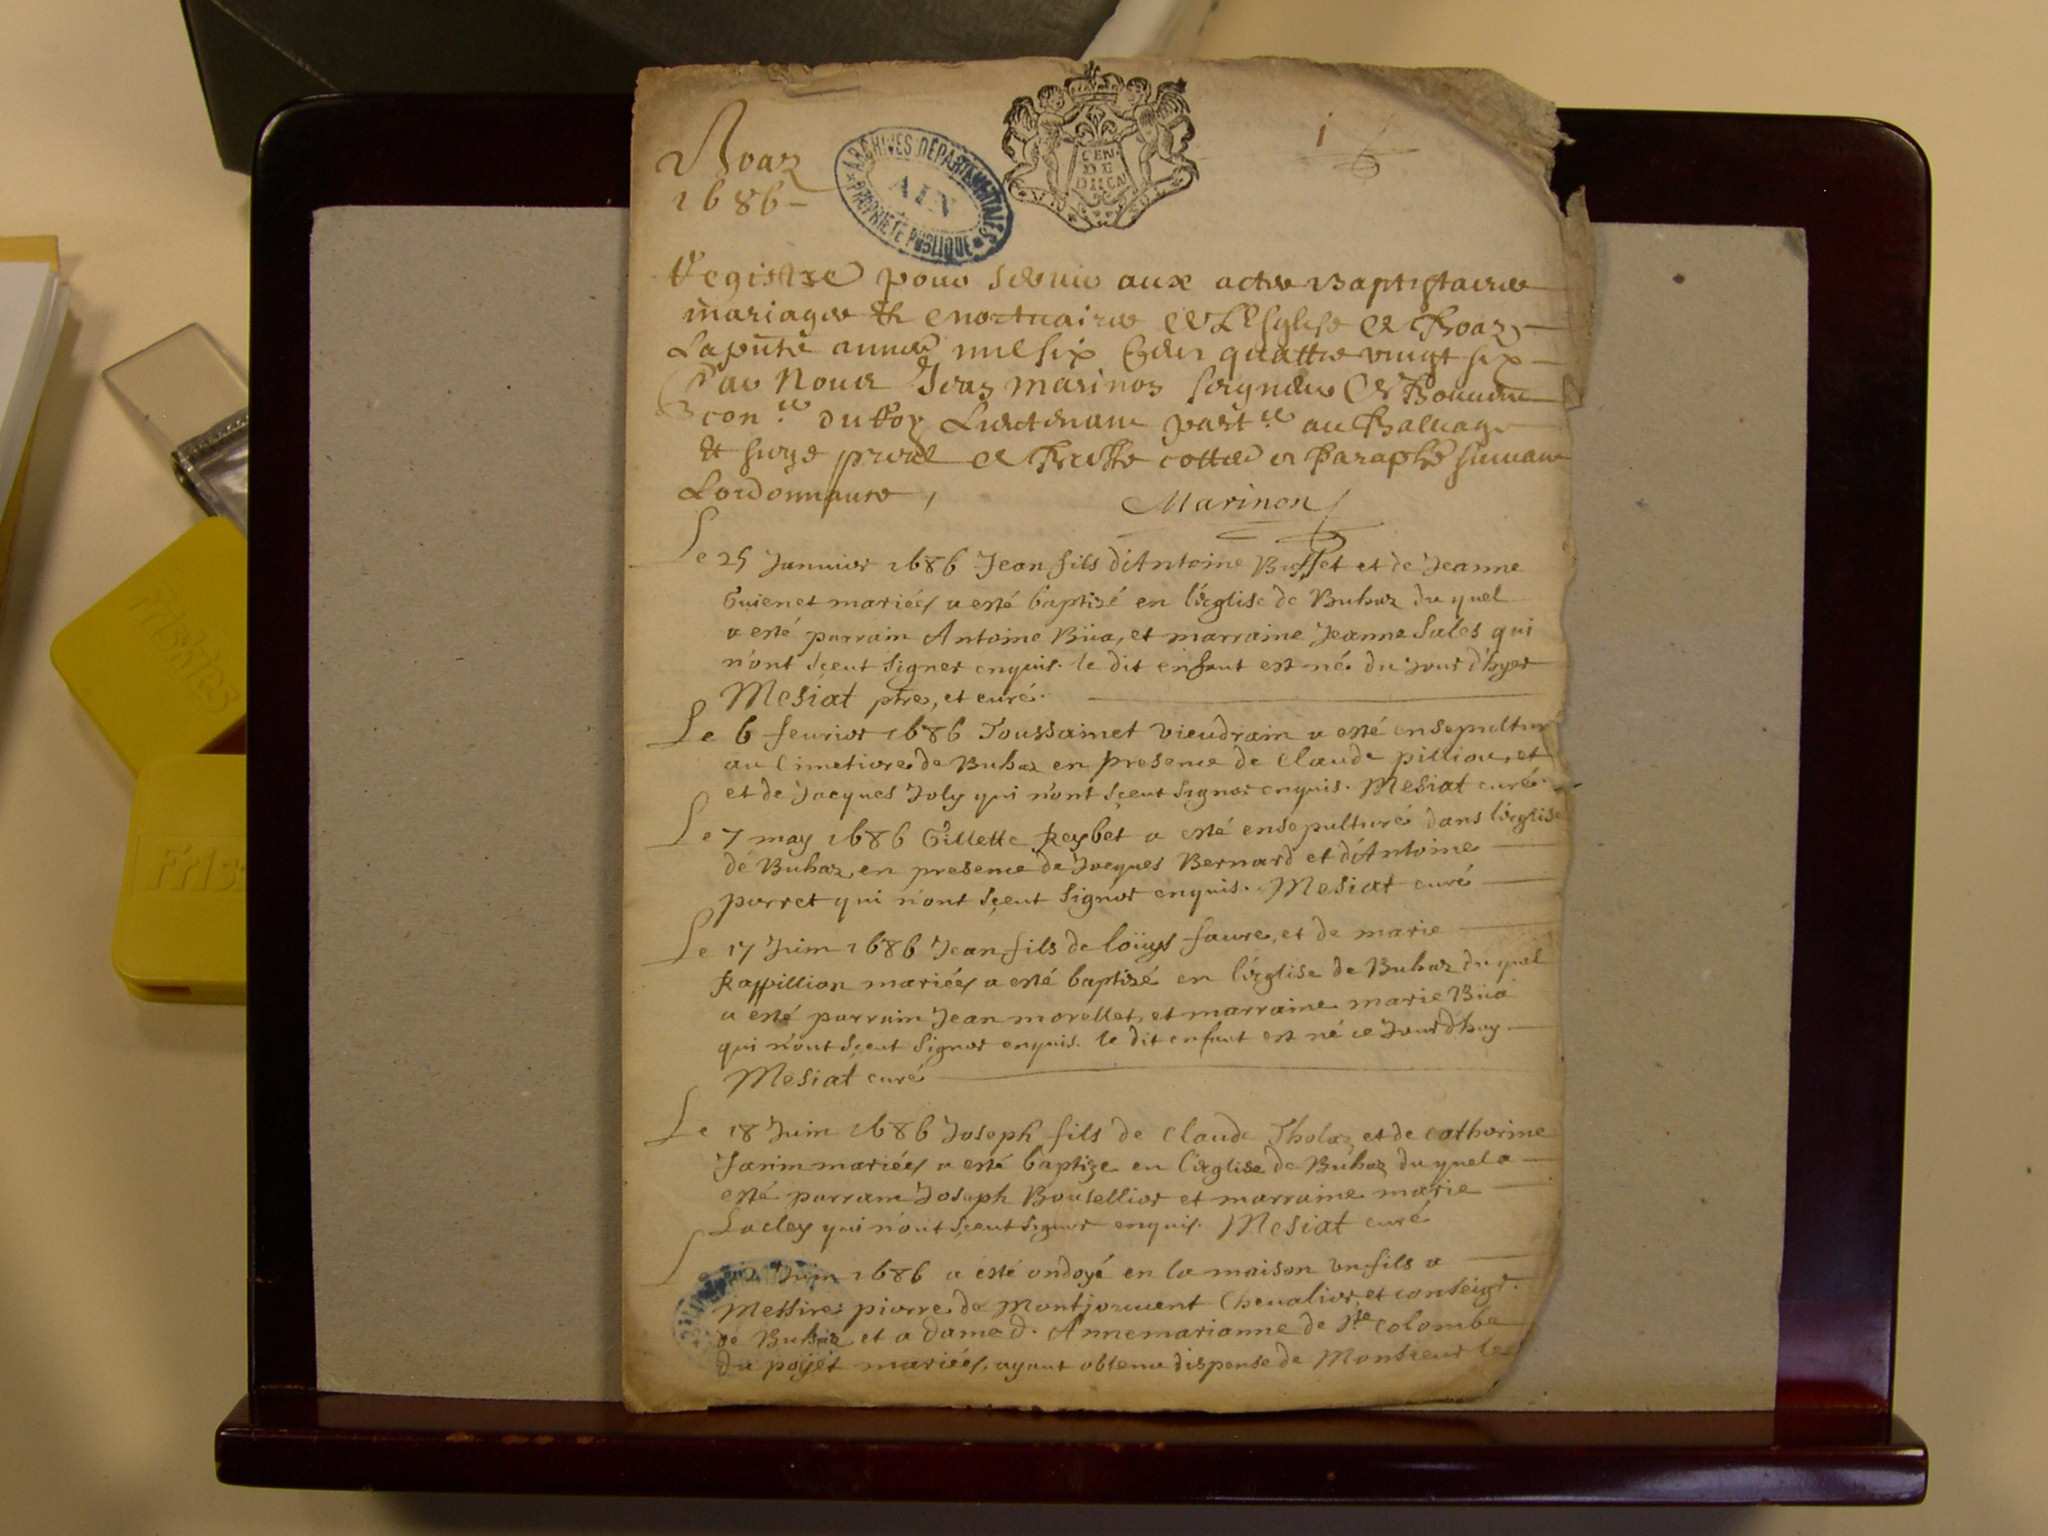 Boaz
1686
ARCHIVES DÉPARTEMENTALES
AIN
PROPRIÉTÉ PUBLIQUE
GEN.
DE
1
Registre pour servir aux actes Baptistaires
mariages et mortuaires de L'Esglise de Boaz
La pñte année mil six Cens quattre vingt six
Par Nous Jean Marinon seigneur de
con.er du Roy Lieutenant part.er au Balliage
et siege pñal de Bresse cottée et Paraphé suivant
Lordonnance,
Marinon
Le 25 Januier 1686 Jean fils d'Antoine Buffet et de Jeanne
Guienet mariéez a esté baptizé en l'églize de Buhaz du quel
a esté parrain Antoine Büa, et marraine Jeanne Sales qui
n'ont sçeut signer enquis. le dit enfant est né du jour d'hyer
Mesiat ptre, et curé.
Le 6 feurier 1686 Toussainet vieudrain a esté ensepultur
au Cimetiere de Buhaz en presence de Claude pilliou, et
et de Jacques Joly qui n'ont sçeut signer enquis. Mesiat curé.
Le 7 may 1686 Gillette Reybet a esté ensepulturé dans l'églize
de Buhaz, en presence de Jacques Bernard et d'Antoine
parret qui n'ont sçeut signer enquis. Mesiat curé
Le 17 Juin 1686 Jean fils de loüys faure, et de marie
Rappillion mariéez a esté baptizé en l'église de Buhaz du quel
a esté parrain Jean morellet, et marraine marie Büa
qui n'ont sçeut signer enquis. le dit enfant est né ce Jourd'huy
Mesiat curé
Le 18 Juin 1686 Joseph fils de Claude Tholaz et de catherine
Jarin mariéez a esté baptize en l'église de Buhaz du quel a
esté parrain Joseph Boutellier et marraine marie
Lacley qui n'ont sçeut signer enquis. Mesiat curé
L Juin 1686 a esté ondoyé en la maison vn fils a
Messire pierre de Montjouuent Cheualier, et conseigr.
de Buhaz et a dame d. Annemarianne de Ste colombe
du poyet mariéez, ayant obtenu dispense de Monsieur le
Friskies
Frisk